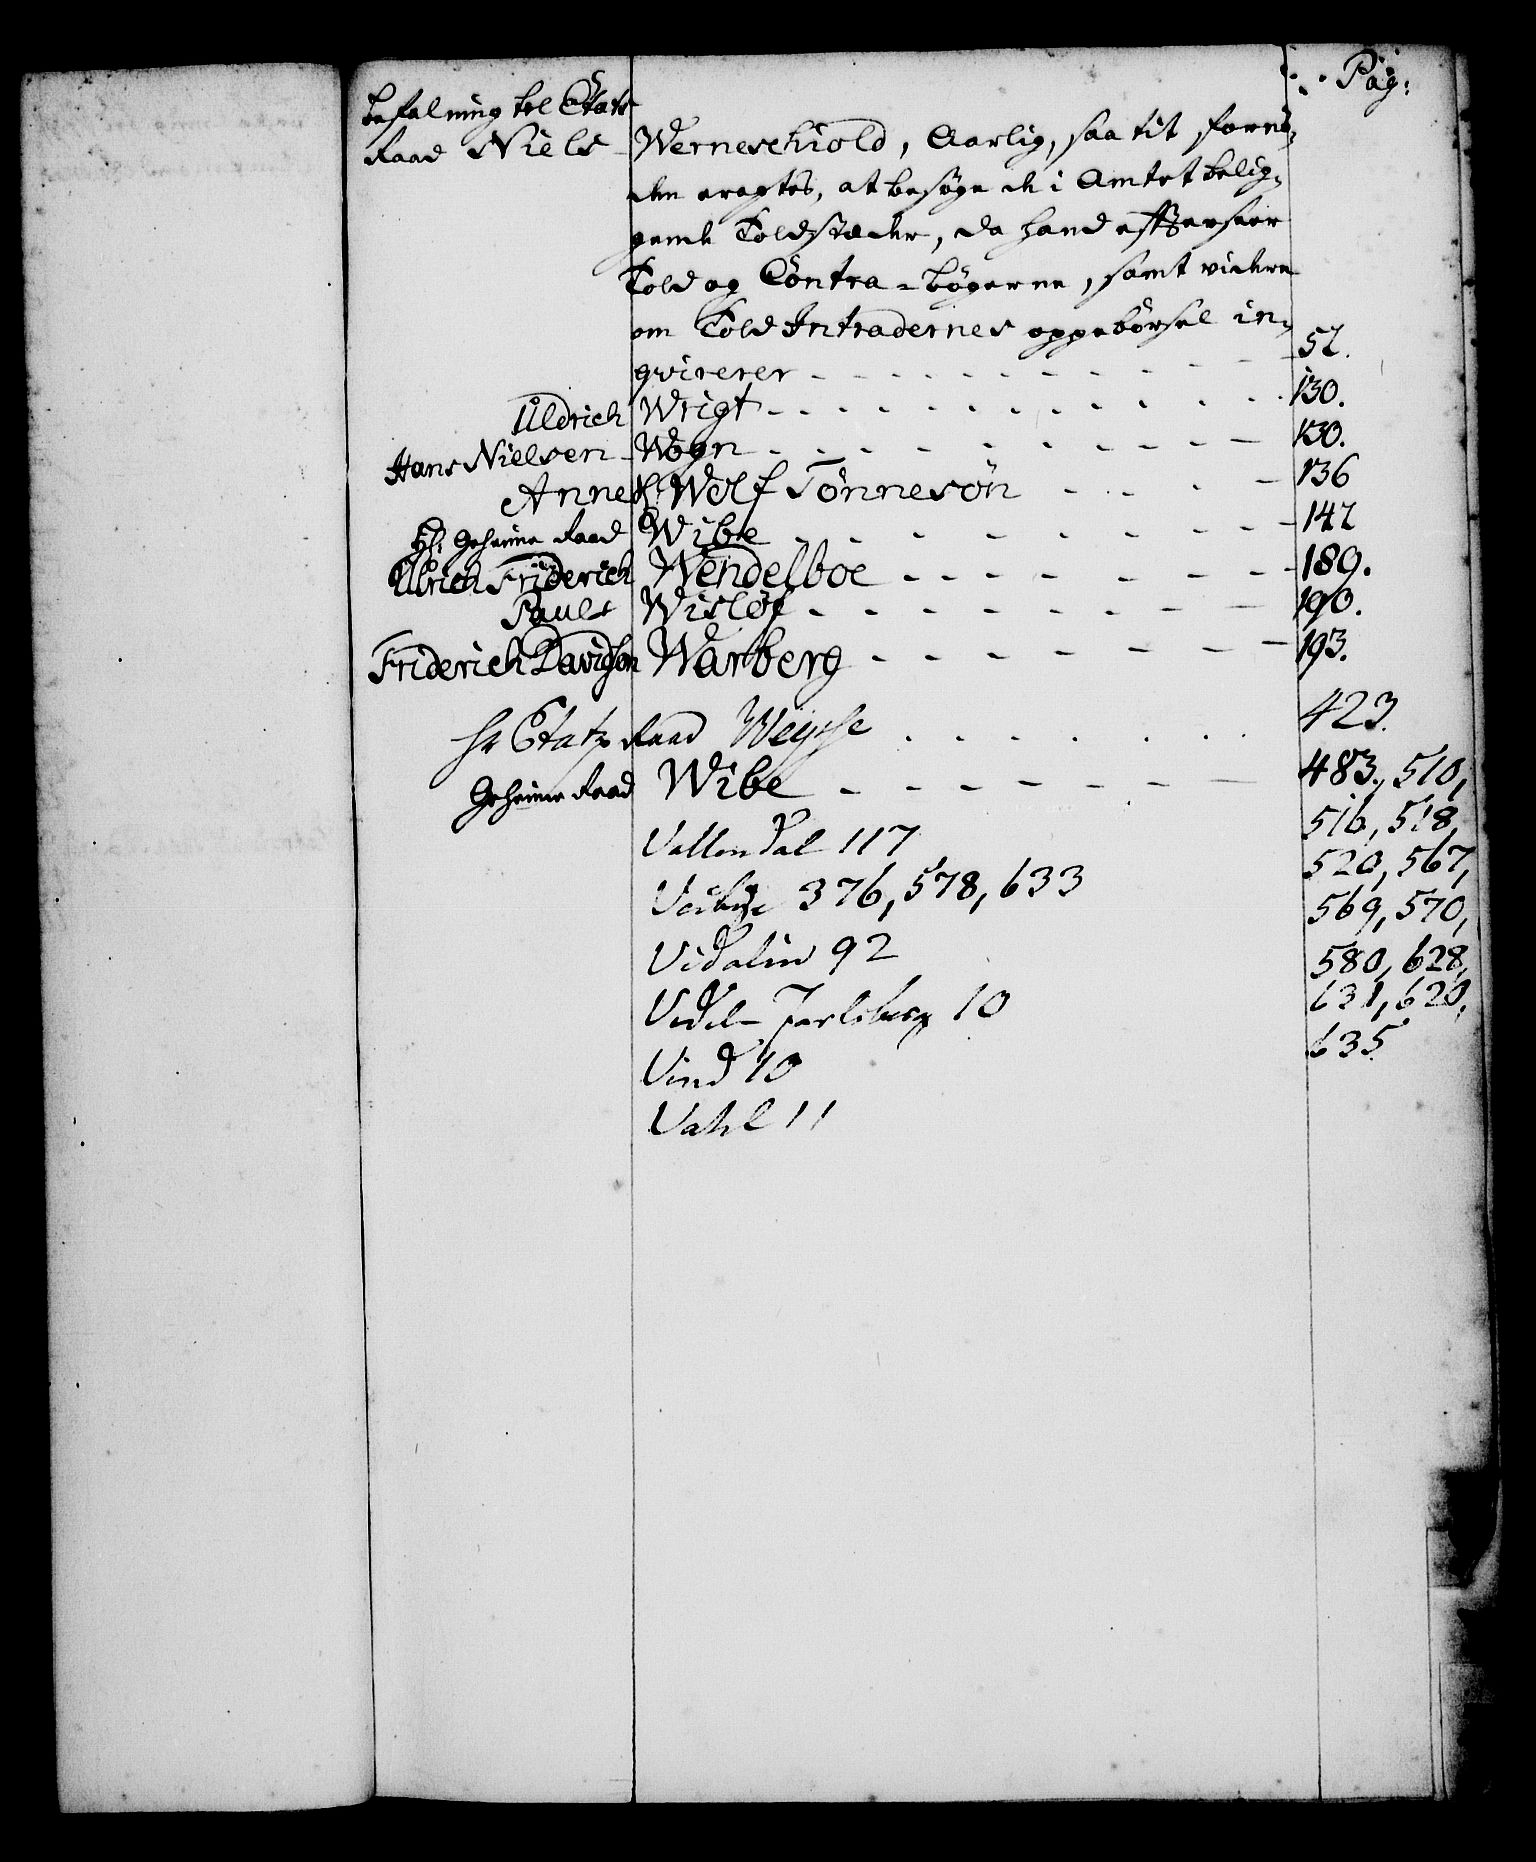 Pag:
befalning til Etats
Raad Niels Werneschiold, Aarlig, saa tit fornö-
den eragtes, at besøge de i Amtet belig-
gende Toldstæder, da hand efterseer
Told og Contra-bøgerne, samt videre
om Told Intradernes oppebørsel in-
qvirerer - - - 52.
Uldrich Wrigt - - - 130.
Hans Nielsen Wogn - - - 130.
Anne Wolf Tønnesøn - - - 136
Hr. Geheime Raad Wibe - - - 142
Ulrich Friderich Wendelboe - - - 189.
Pauls Wisløf - - - 190.
Friderich Davidson Warberg - - - 193.
Hr Etatz Raad Weyse . . . 423.
Geheime Raad Wibe - - - 483., 510,
516, 518,
520, 567,
569, 570,
580, 628,
631, 620,
635
Vallendal 117
Veibye 376, 578, 633
Vidalin 92
Vedel-Jarlsberg 10
Vind 10
Vahl 11